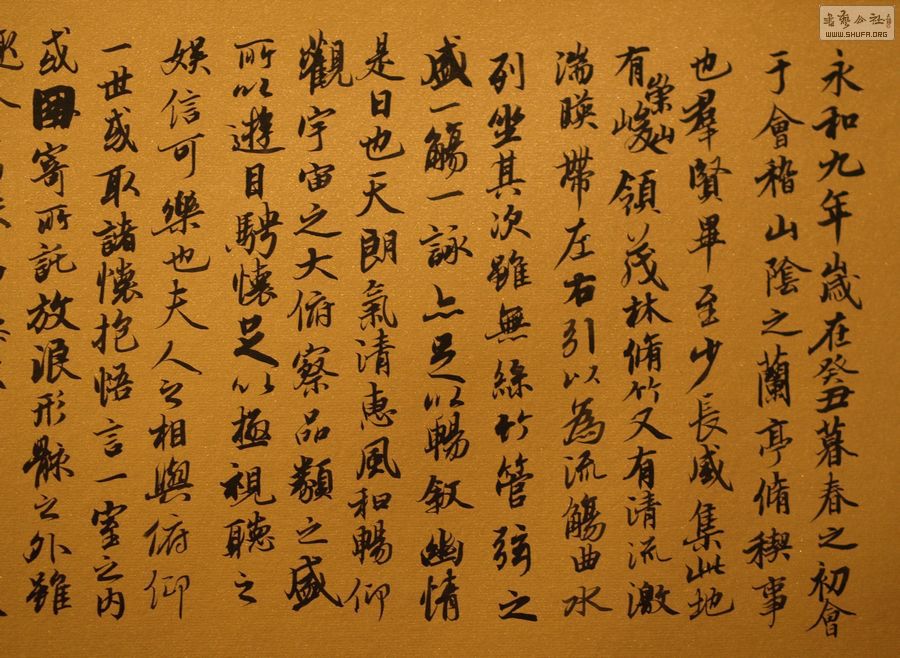 永和九年歲在癸丑暮春之初會
于會稽山陰之蘭亭脩稧事
也羣賢畢至少長咸集此地
有崇山峻領茂林脩竹又有清流激
湍暎帶左右引以為流觴曲水
列坐其次雖無絲竹管弦之
盛一觴一詠亦足以暢叙幽情
是日也天朗氣清惠風和暢仰
觀宇宙之大俯察品類之盛
所以遊目騁懷足以極視聽之
娛信可樂也夫人之相與俯仰
一世或取諸懷抱悟言一室之內
或因寄所託放浪形骸之外雖
WWW.SHUFA.ORG